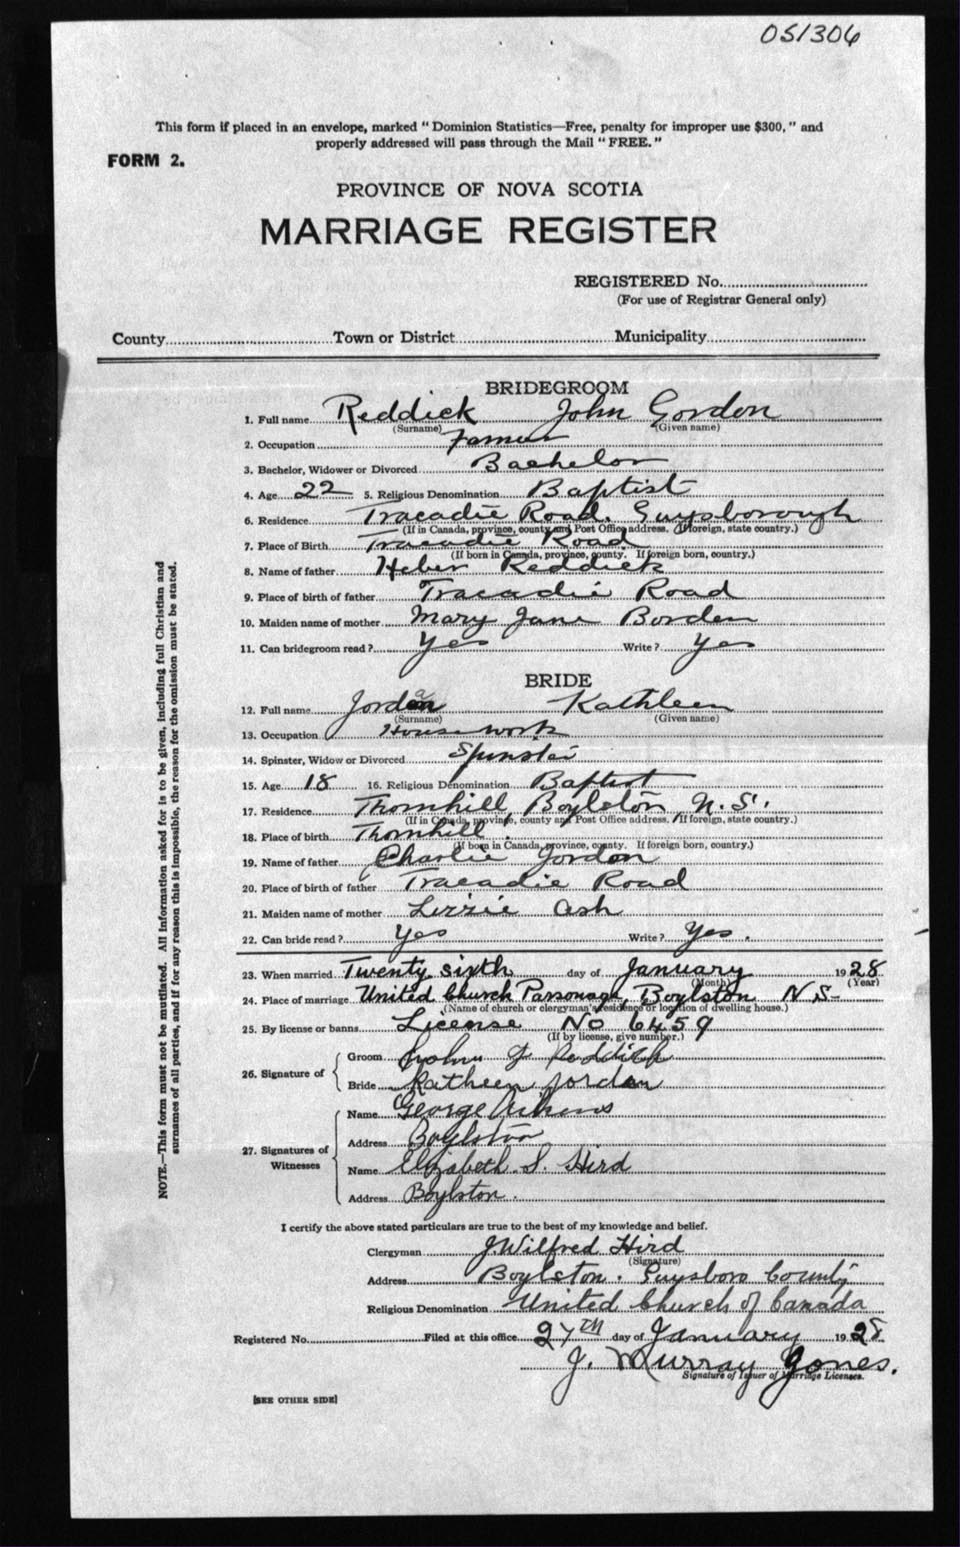 051306
This form if placed in an envelope, marked " Dominion Statistics—Free, penalty for improper use $300, " and
properly addressed will pass through the Mail " FREE. "
FORM 2.
PROVINCE OF NOVA SCOTIA
MARRIAGE REGISTER
REGISTERED No.
(For use of Registrar General only)
County Town or District Municipality
BRIDEGROOM
1. Full name Reddick John Gordon
(Surname) (Given name)
2. Occupation Famer
3. Bachelor, Widower or Divorced Bachelor
4. Age 22 5. Religious Denomination Baptist
6. Residence Tracadie Road, Guysborough
(If in Canada, province, county and Post Office address. If foreign, state country.)
7. Place of Birth Tracadie Road
(If born in Canada, province, county. If foreign born, country.)
8. Name of father Heber Reddick
9. Place of birth of father Tracadie Road
10. Maiden name of mother Mary Jane Borden
11. Can bridegroom read? Yes Write? Yes
BRIDE
12. Full name Jordan Kathleen
(Surname) (Given name)
13. Occupation House work
14. Spinster, Widow or Divorced Spinster
15. Age 18 16. Religious Denomination Baptist
17. Residence Thornhill, Boylston N.S.
(If in Canada, province, county and Post Office address. If foreign, state country.)
18. Place of birth Thornhill.
(If born in Canada, province, county. If foreign born, country.)
19. Name of father Charlie Jordon
20. Place of birth of father Tracadie Road
21. Maiden name of mother Lizzie Ash
22. Can bride read? Yes Write? Yes.
23. When married Twenty sixth day of January 1928
(Month) (Year)
24. Place of marriage United Church Parsonage, Boylston N S-
(Name of church or clergyman's residence or location of dwelling house.)
25. By license or banns License No 6459
(If by license, give number.)
26. Signature of
Groom John G Reddick
Bride Kathleen Jordan
27. Signatures of Witnesses
Name George Aikens
Address Boylston
Name Elizabeth S. Hird
Address Boylston.
I certify the above stated particulars are true to the best of my knowledge and belief.
Clergyman J. Wilfred Hird
(Signature)
Address Boylston. Guysboro County
Religious Denomination United Church of Canada
Registered No. Filed at this office 27TH day of January 1928
J. Murray Jones.
Signature of Issuer of Marriage Licenses.
[SEE OTHER SIDE]
NOTE.—This form must not be mutilated. All information asked for is to be given, including full Christian and
surnames of all parties, and if for any reason this is impossible, the reason for the omission must be stated.